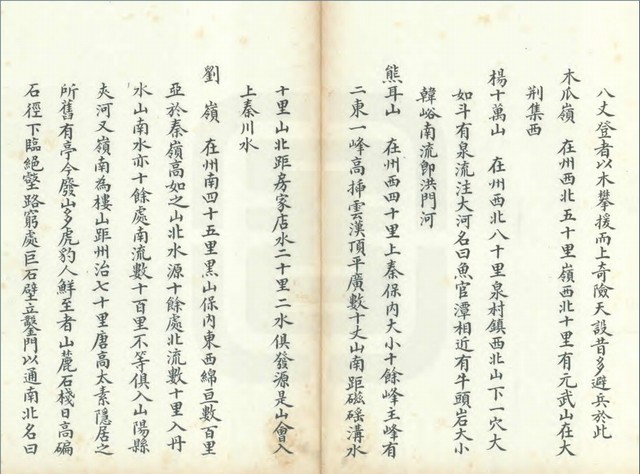 八丈登者以木攀援而上奇險天設昔多避兵於此
木瓜嶺 在州西北五十里嶺西北十里有元武山在大
荆集西
楊十萬山 在州西北八十里泉村鎮西北山下一穴大
如斗有泉流注大河名曰魚官潭相近有牛頭岩大小
韓峪南流即洪門河
熊耳山 在州西四十里上秦保内大小十餘峰主峰有
二東一峰高揷雲漢頂平廣數十丈山南距磁磘溝水
十里山北距房家店水二十里二水俱發源是山會入
上秦川水
劉嶺 在州南四十五里黑山保内東西綿亘數百里
亞於秦嶺高如之山北水源十餘處北流數十里入丹
水山南水亦十餘處南流數十百里不等俱入山陽縣
夾河又嶺南為樓山距州治七十里唐高太素隱居之
所舊有亭今廢山多虎豹人鮮至者山麓石棧日高碥
石徑下臨絕壑路窮處巨石壁立鑿門以通南北名曰